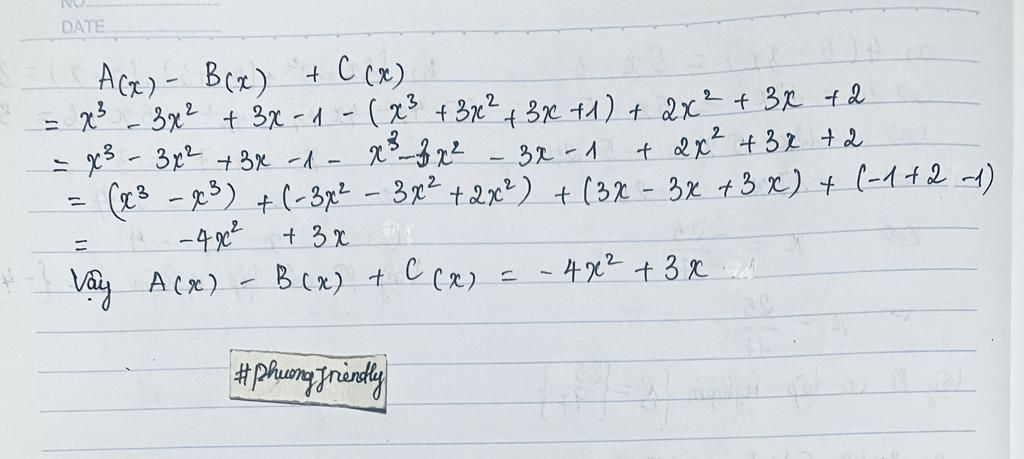 NO
DATE
A(x) - B(x) + C(x)
= x³ - 3x² + 3x - 1 - (x³ + 3x² + 3x + 1) + 2x² + 3x + 2
= x³ - 3x² + 3x - 1 - x³ - 3x² - 3x - 1 + 2x² + 3x + 2
= (x³ - x³) + (-3x² - 3x² + 2x²) + (3x - 3x + 3x) + (-1 + 2 - 1)
= -4x² + 3x
Vậy A(x) - B(x) + C(x) = -4x² + 3x
#phuongfriendly